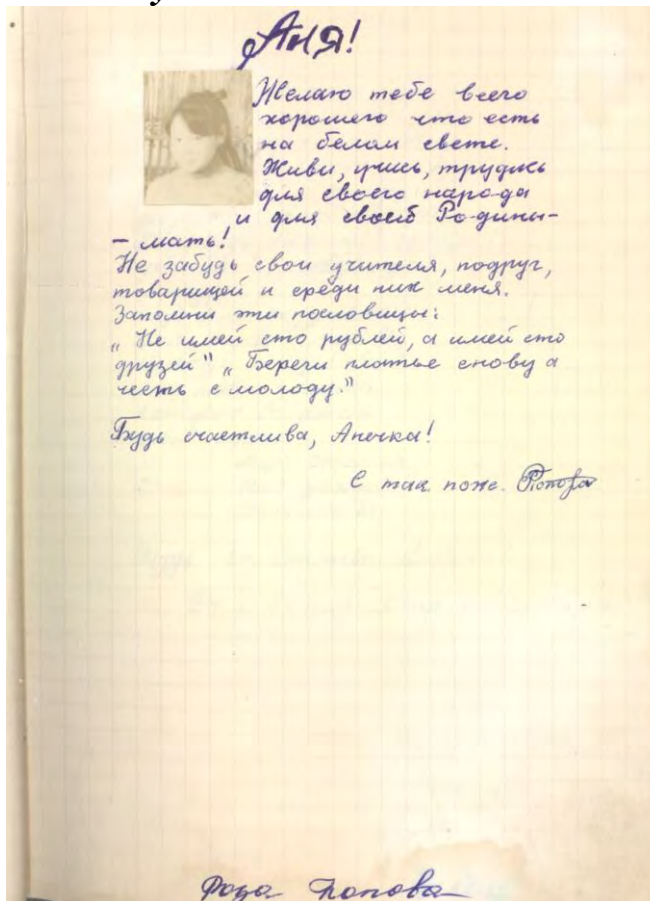 Аня!
Желаю тебе всего
хорошего что есть
на белом свете.
Живи, учись, трудись
для своего народа
и для своей Родины-
- мать!
Не забудь свои учителя, подруг,
товарищей и среди них меня.
Запомни эти пословицы:
„Не имей сто рублей, а имей сто
друзей" „Береги платье снову а
честь с молоду."
Будь счастлива, Анечка!
С так. поже. Попова
Роза Попова